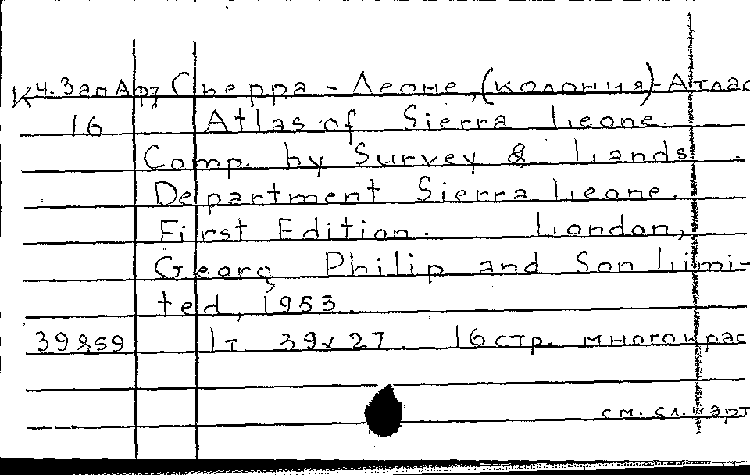 К ч. Зап Афр Сьерра-Леоне, (колония)-Атлас
16 Atlas of Sierra Leone.
Comp. by Survey & Lands
Department Sierra Leone.
First Edition. London,
Georg Philip and Son Limi-
ted, 1953.
39859 1т 39x27. 16 стр. многокрас
см. сл. карт